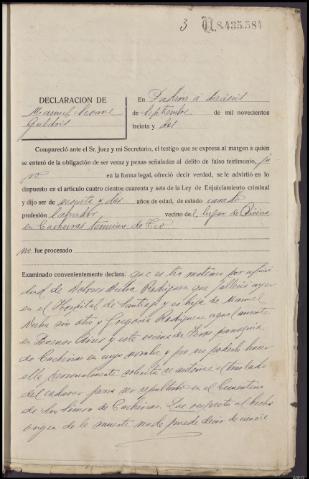 3
8.435.584
DECLARACION DE
Manuel
En Padron a dieciseis
de Septiembre de mil novecientos
treinta y dos
Compareció ante el Sr. Juez y mi Secretario, el testigo que se expresa al margen a quien
se enteró de la obligación de ser veraz y penas señaladas al delito de falso testimonio, ju
ró en la forma legal, ofreció decir verdad, se le advirtió en lo
dispuesto en el artículo cuatro cientos cuarenta y seis de la Ley de Enjuiciamiento criminal
y dijo ser de y dos años de edad, de estado casado
profesión labrador vecino del lugar de
en Cacheiras termino de Teo
no fue procesado
Examinado convenientemente declara: que es tio materno por afini
dad de Dolores Rodriguez que falleció ayer
en el Hospital de Santiago y es hija de Manuel
sin otro y Gregoria Rodriguez aquel ausente
en Buenos Aires y esta vecina de parroquia
de Cacheiras en cuyo nombre y por no poderlo hacer
ella personalmente solicita se autorice el traslado
del cadaver para ser sepultado en el Cementerio
de San Simon de Cacheiras. Que respecto al hecho
origen de la muerte nada puede decir de ciencia